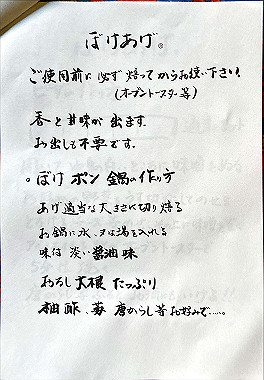 ぼけあげ。
ご使用前に必ず焙ってからお使い下さい。
(オーブントースター等)
香と甘味が出ます。
お出しも不要です。
。ぼけポン鍋の作り方
あげ適当な大きさに切り焙る
お鍋に水、又は湯を入れる
味は淡い醤油味
おろし大根たっぷり
柚酢、葱唐からし等お好みで……。